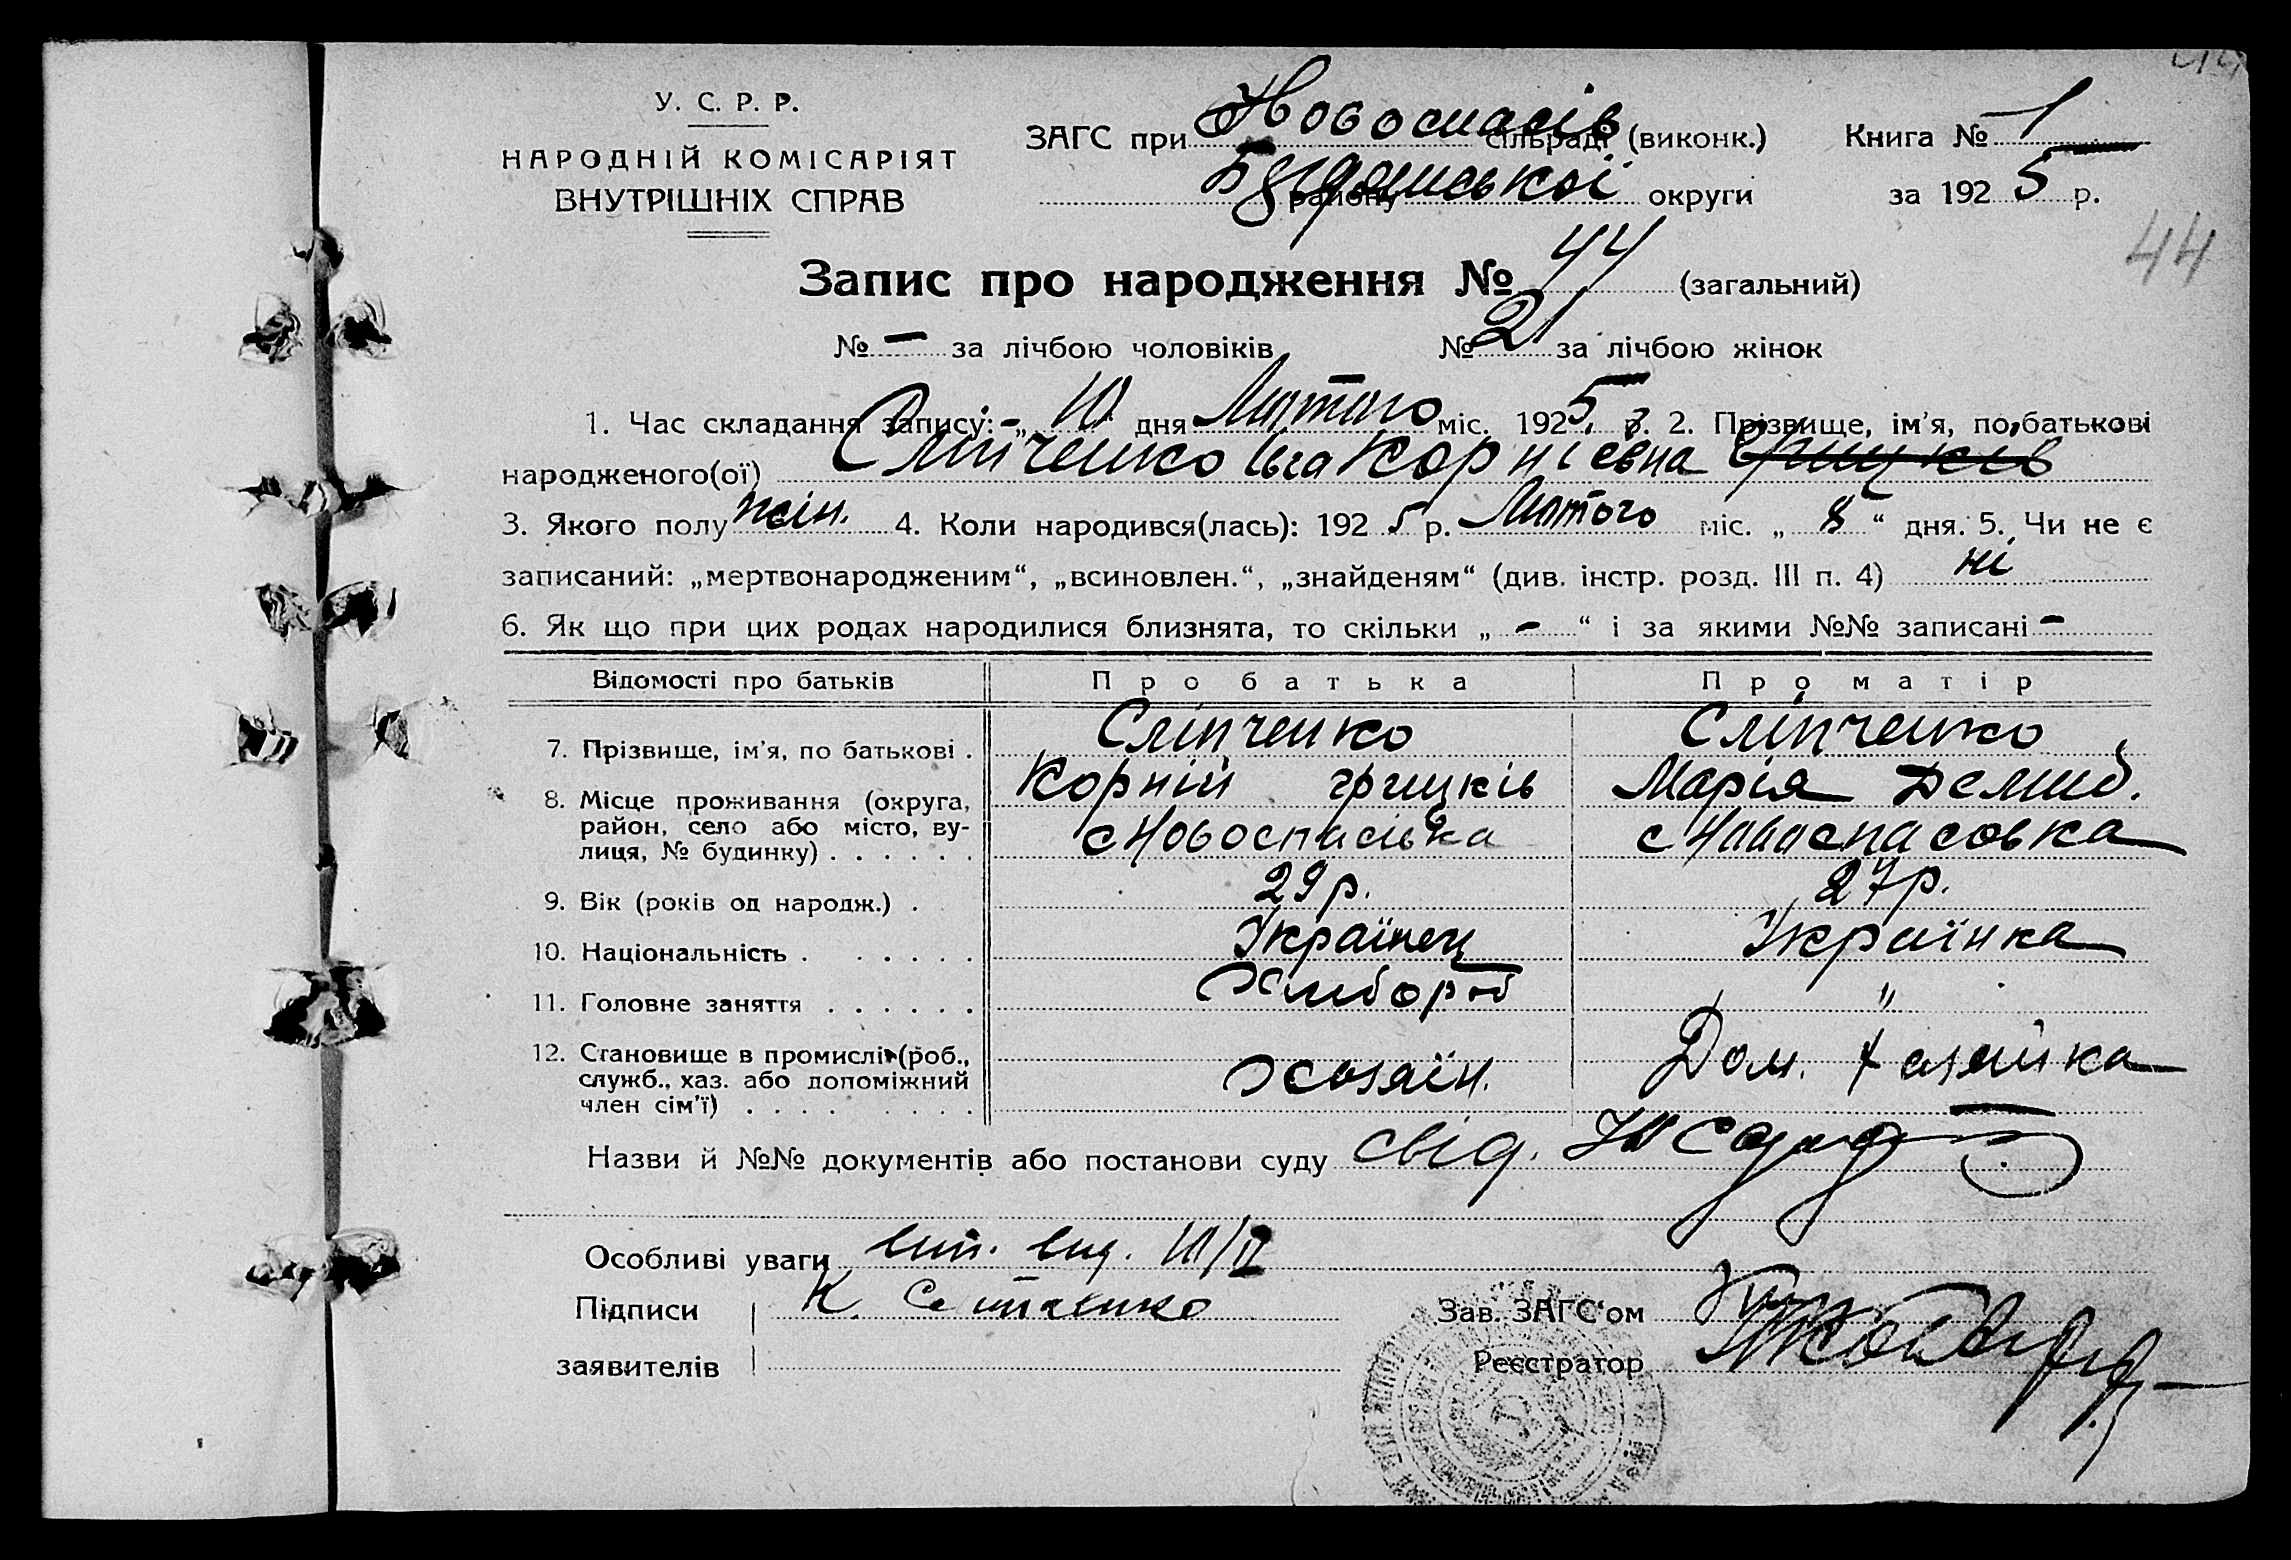 У. С. Р. Р.
НАРОДНІЙ КОМІСАРІЯТ
ВНУТРІШНІХ СПРАВ
ЗАГС при Новоспасів сільраді (виконк.) Книга № 1
району округи за 1925 р.
44
Запис про народження № 44 (загальний)
№ — за лічбою чоловіків № 21 за лічбою жінок
1. Час складання запису: „10“ дня Лютого міс. 1925 р. 2. Прізвище, ім'я, по батькові
народженого(ої) Сліпченко Корніевна Грицків
3. Якого полу жін. 4. Коли народився(лась): 1925 р. Лютого міс. „ 8 “ дня. 5. Чи не є
записаний: „мертвонародженим“, „всиновлен.“, „знайденям“ (див. інстр. розд. III п. 4) ні
6. Як що при цих родах народилися близнята, то скільки „ - “ і за якими №№ записані -
Відомості про батьків Про батька Про матір
7. Прізвище, ім'я, по батькові . Сліпченко Сліпченко
Корній грицків Марія Демид.
8. Місце проживання (округа,
район, село або місто, ву-
лиця, № будинку) . . . . . . с Новоспасівка с Новоспасовка
9. Вік (років од народж.) . 29 р. 27 р.
10. Національність . . . . . . Українец Українка
11. Головне заняття . . . . . . Хлибороб "
12. Становище в промислі (роб.,
служб., хаз. або допоміжний
член сім'ї) . . . . . . . . Хозяїн. Дом. Хазяйка
Назви й №№ документів або постанови суду свід.
Особливі уваги
Підписи К. Сліпченко Зав. ЗАГС'ом
заявителів Реєстратор